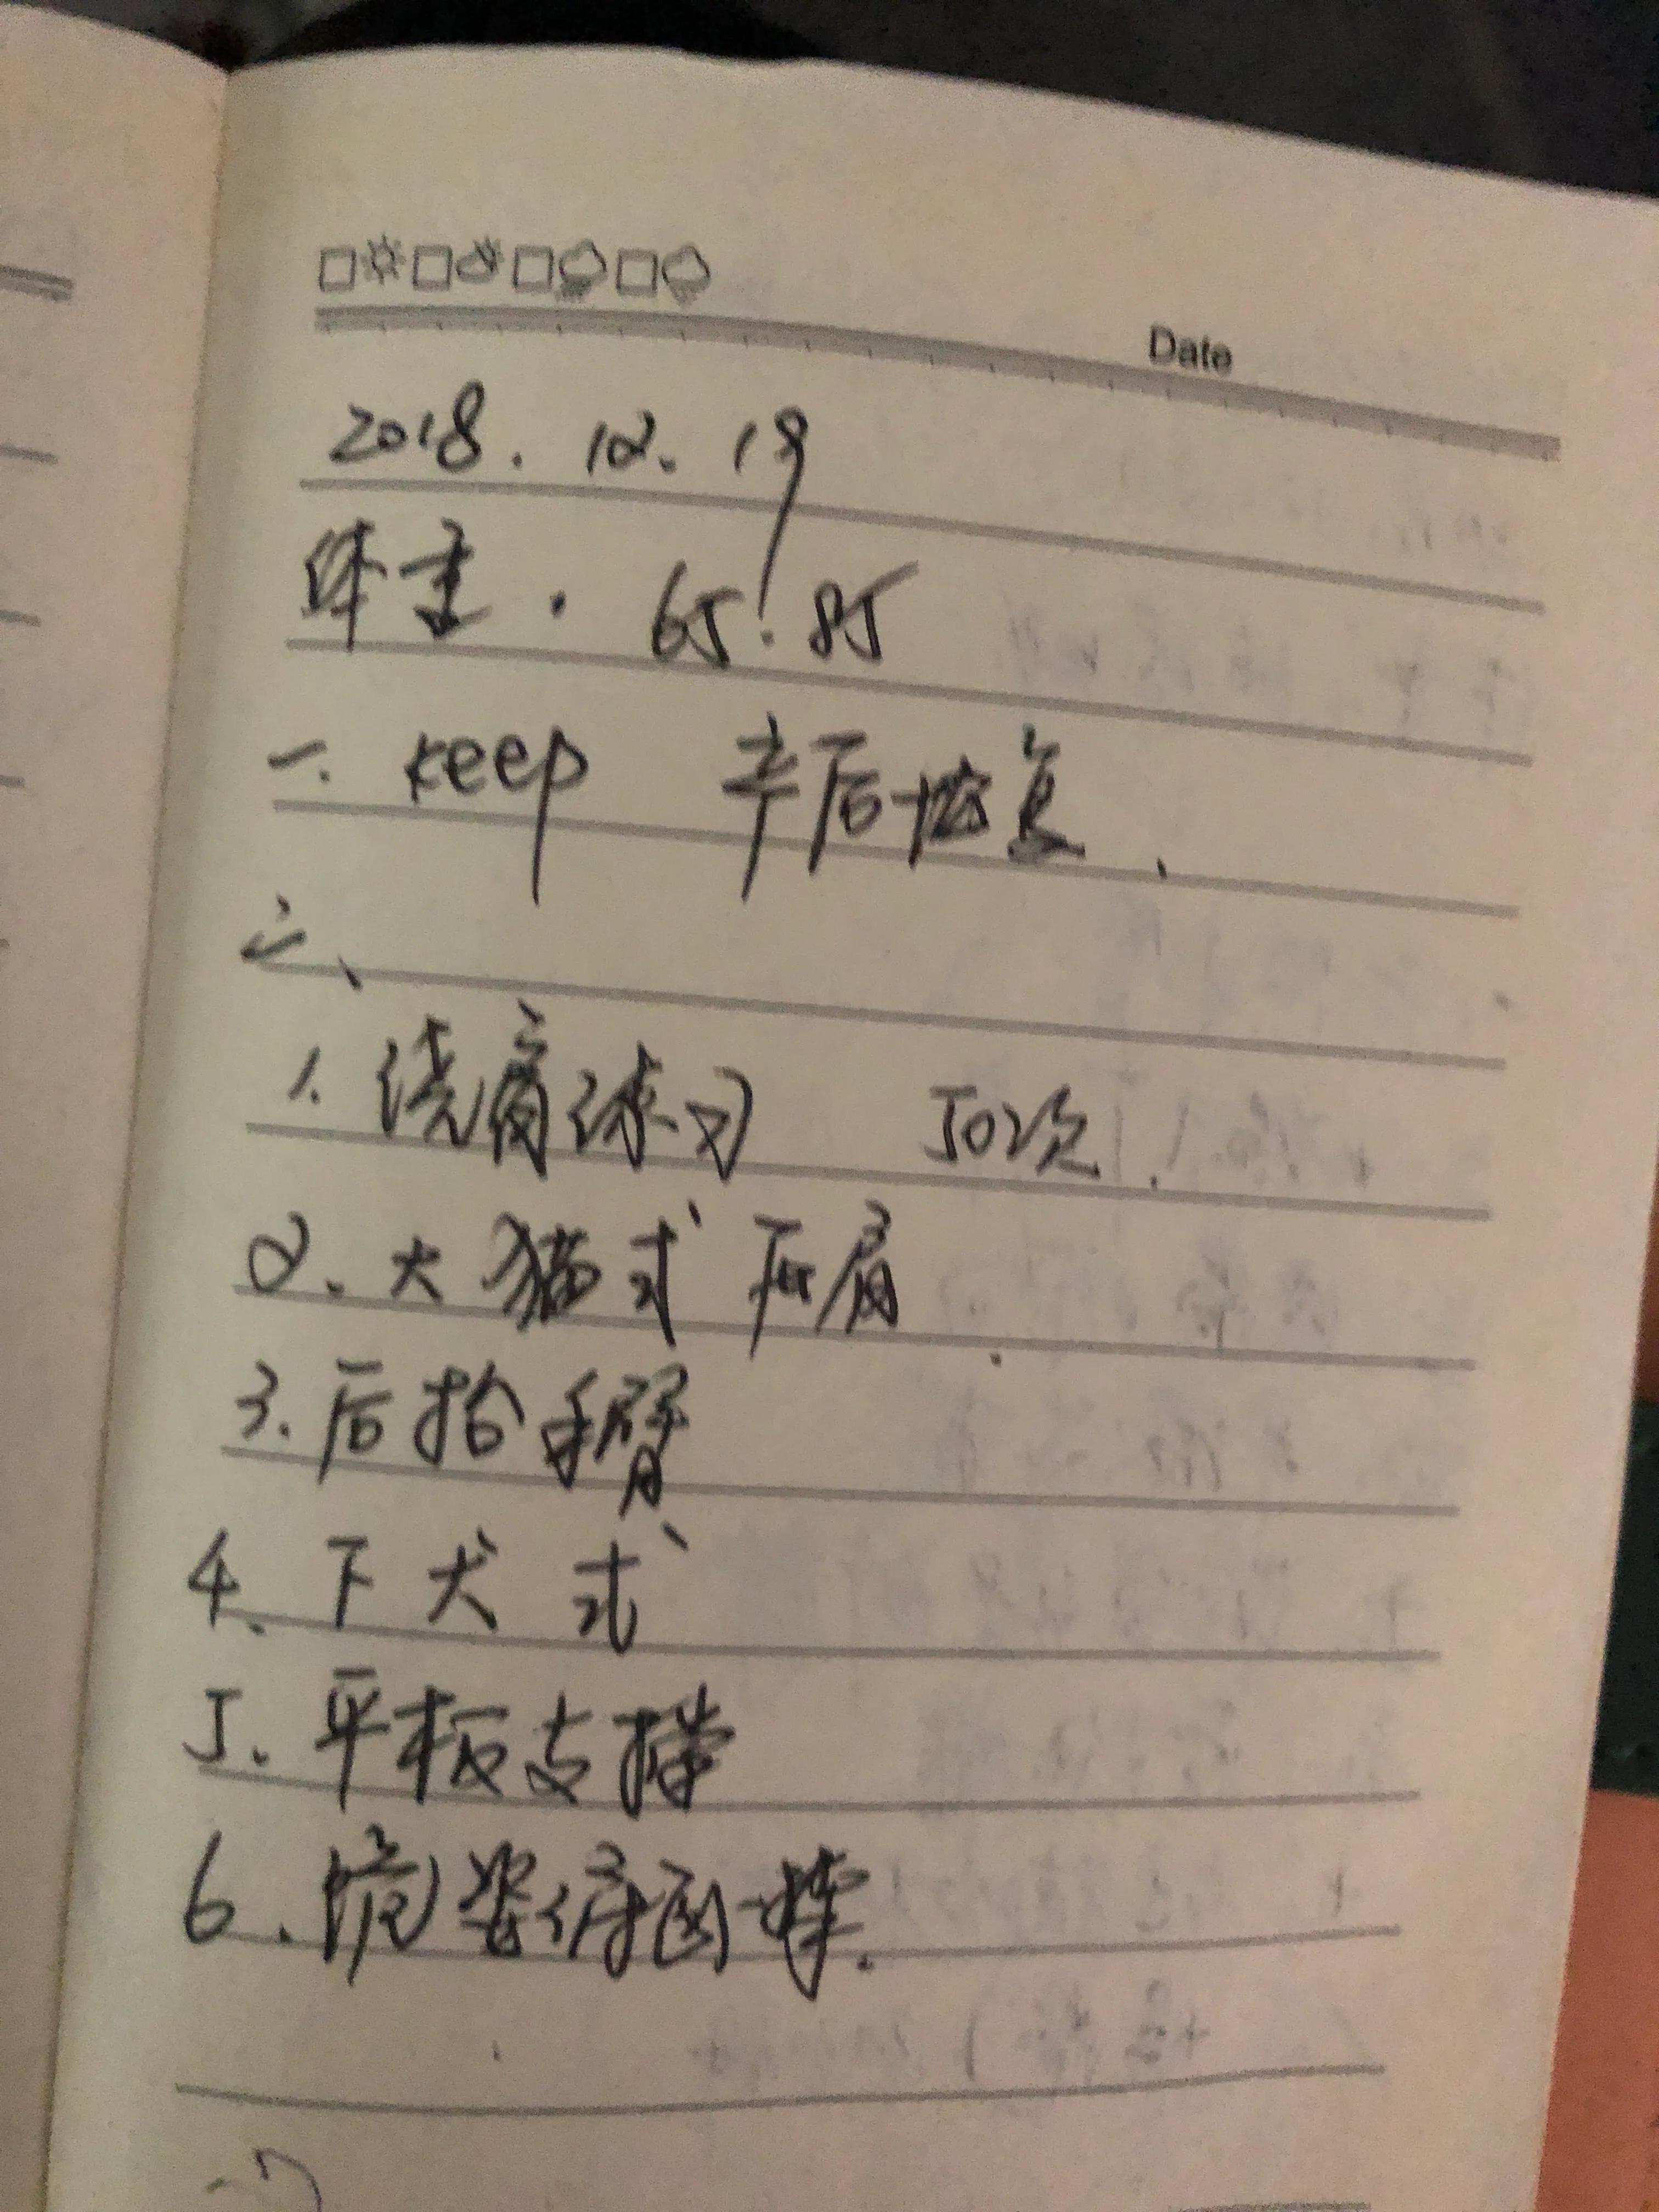 Date
2018.12.19
体重. 65.85
一. keep 产后恢复.
二、
1. 绕肩练习 50次.
2. 大猫式 开肩
3. 后抬手臂
4. 下犬式
5. 平板支撑
6.